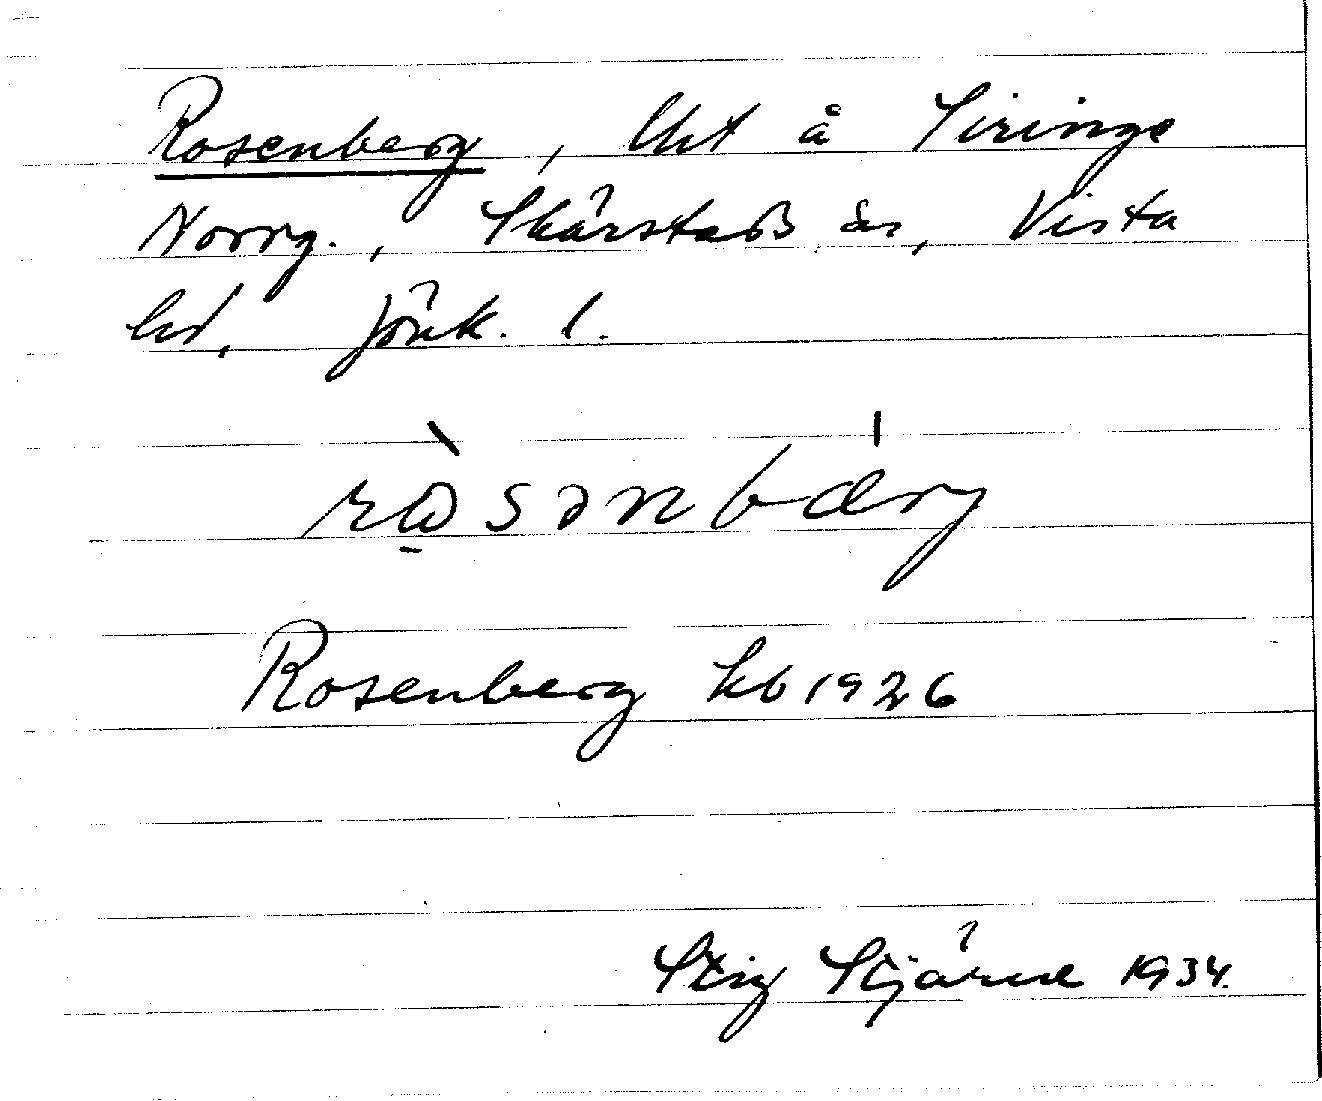 Rosenberg, Uht å Siringe
Norrg., Skärstads sn, Vista
hd, Jönk. l.
rɷ̀sənbárg
Rosenberg kb 1926
Stig Stjärne 1934.